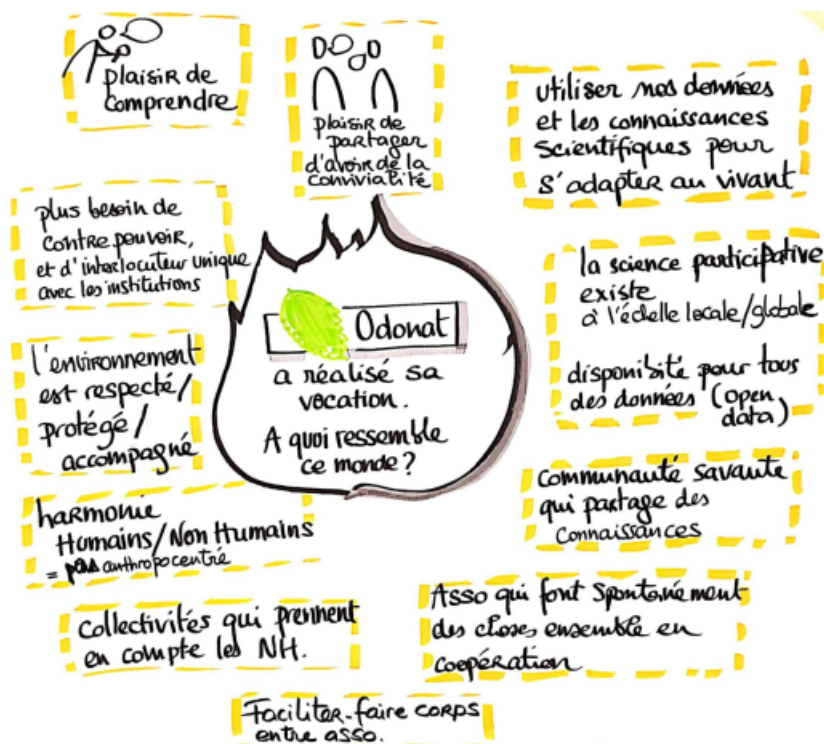 plaisir de
comprendre
plaisir de
partager
d'avoir de la
convivialité
utiliser nos données
et les connaissances
scientifiques pour
s'adapter au vivant
plus besoin de
contre pouvoir,
et d'interlocuteur unique
avec les institutions
Odonat
a réalisé sa
vocation.
A quoi ressemble
ce monde?
la science participative
existe
à l'échelle locale/globale
disponibilité pour tous
des données (open
data)
l'environnement
est respecté/
protégé/
accompagné
communauté savante
qui partage des
connaissances
harmonie
Humains/Non Humains
= pas anthropocentré
Asso qui font spontanément
des choses ensemble en
coopération
collectivités qui prennent
en compte les NH.
Faciliter-faire corps
entre asso.